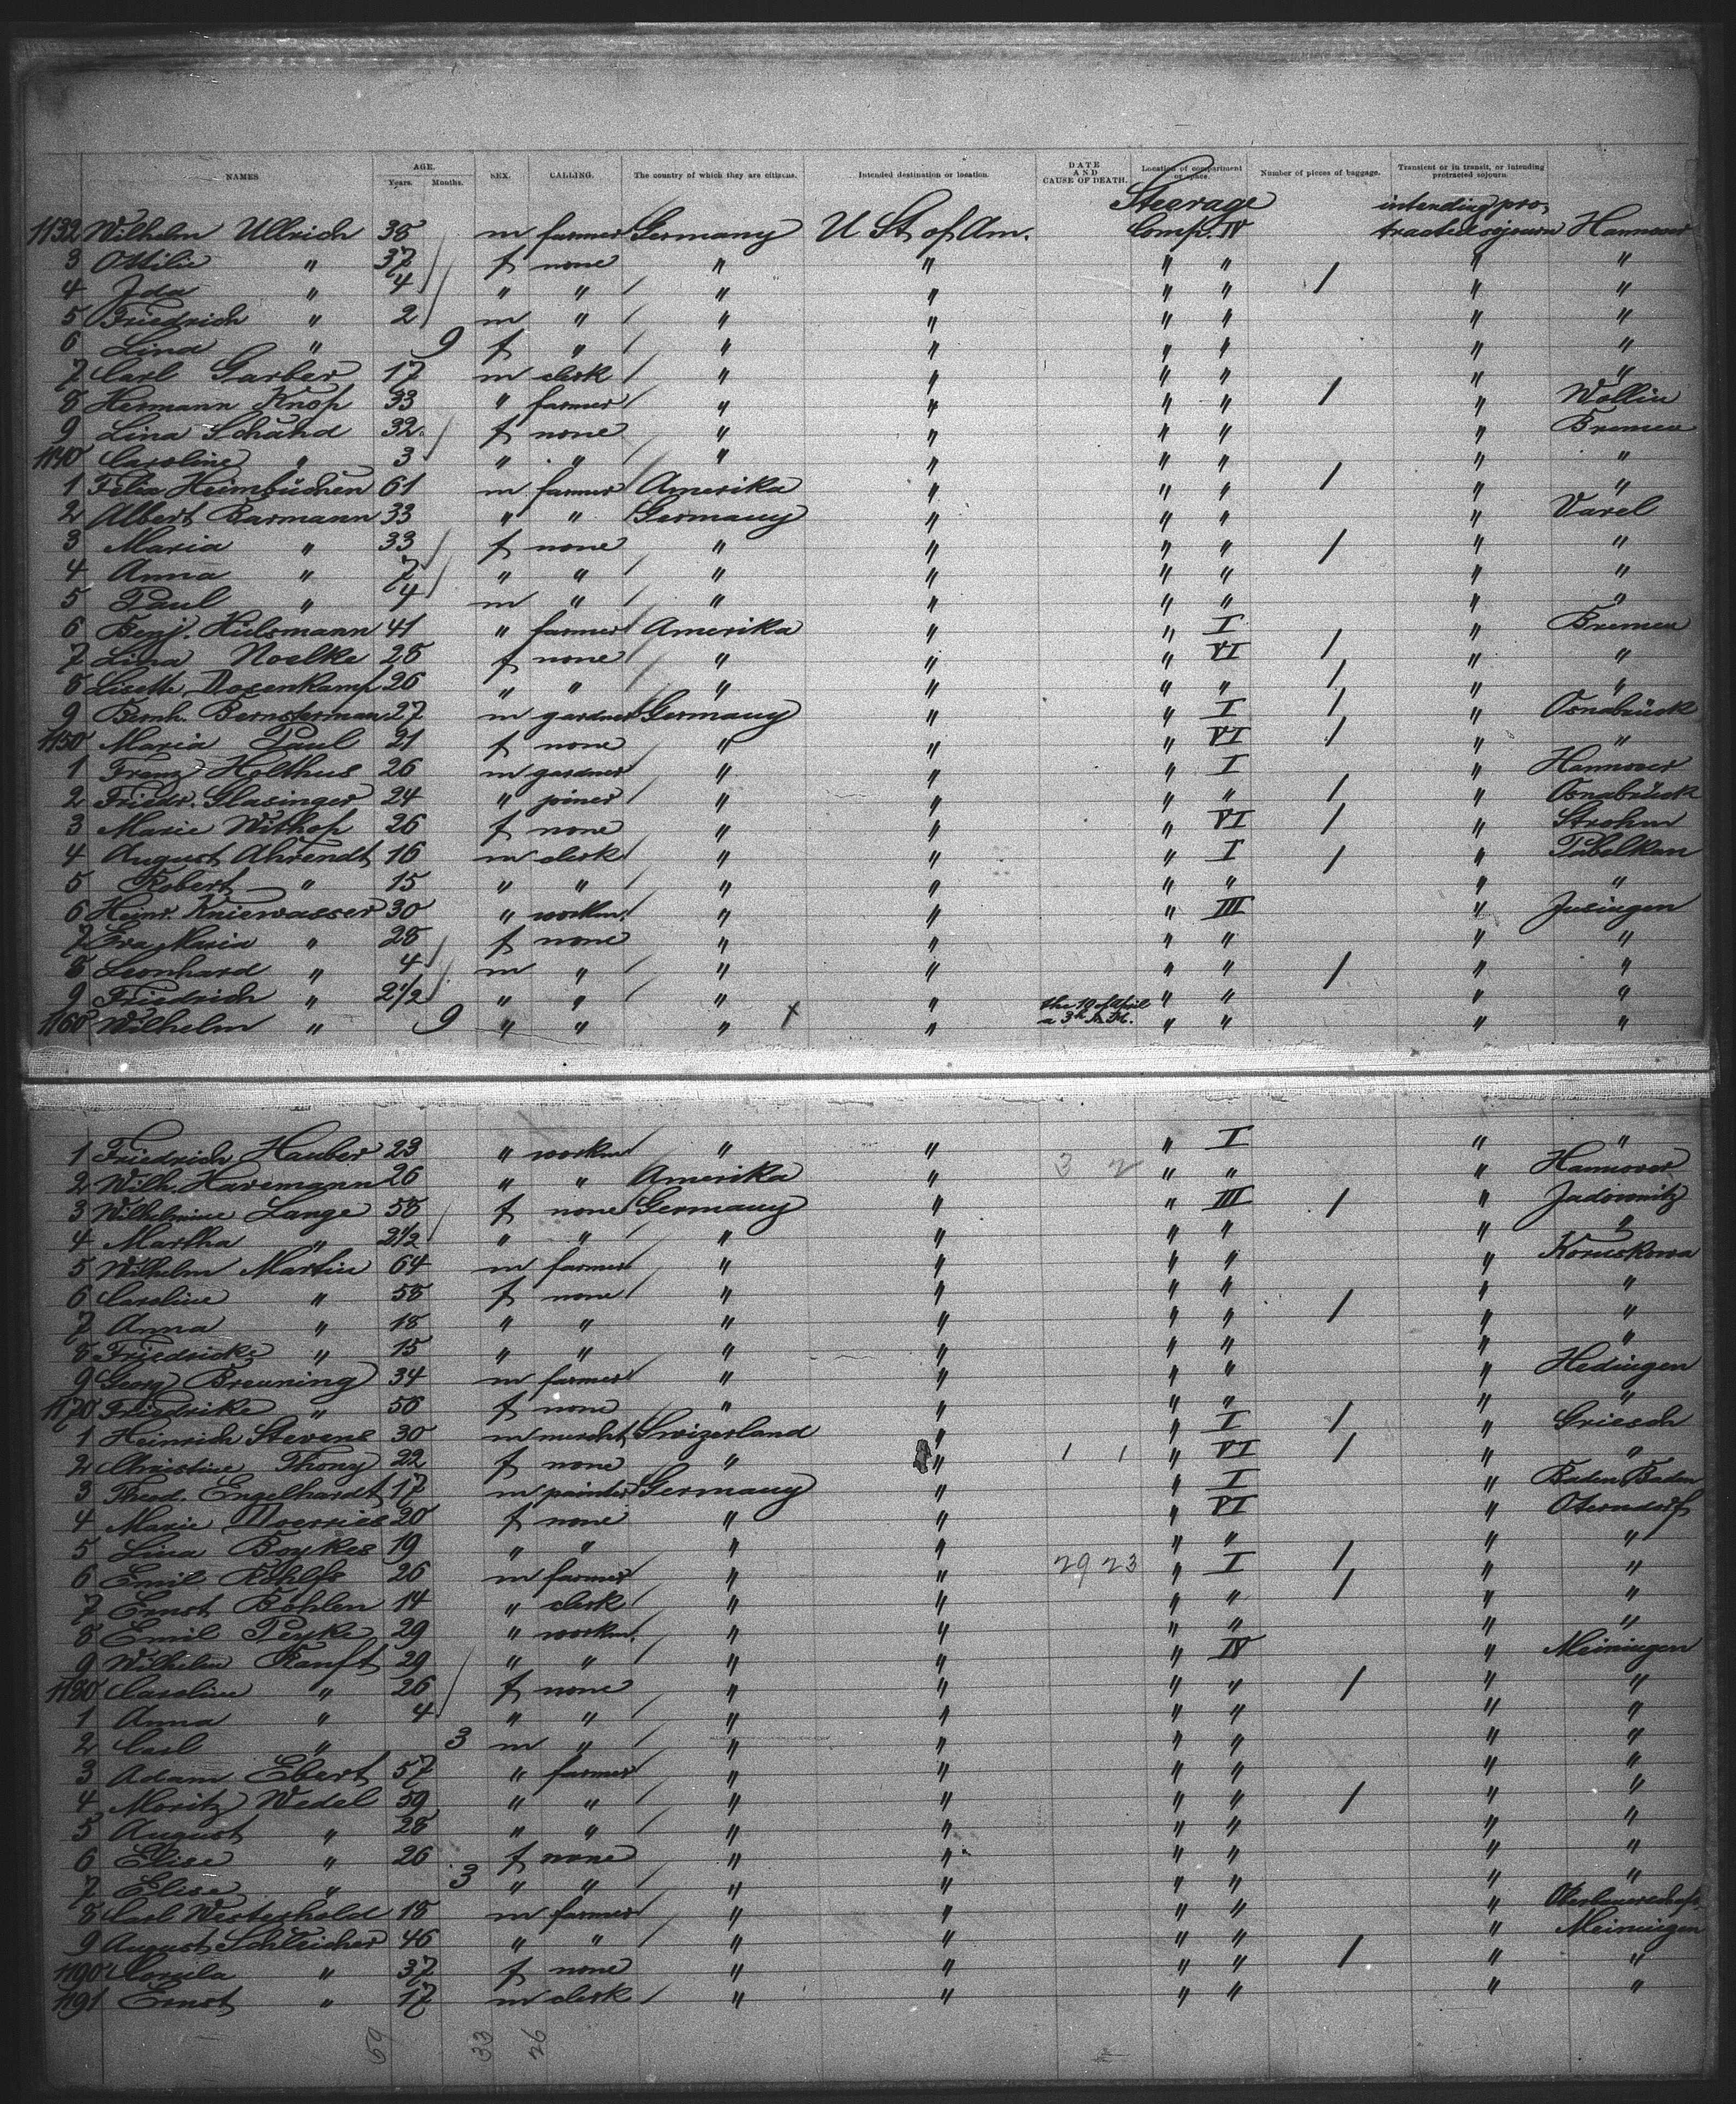 NAMES AGE. Years. Months. SEX. CALLING. The country of which they are citizens. Intended destination or location. DATE AND CAUSE OF DEATH. Location of compartment or space. Number of pieces of baggage. Transient or in transit, or intending protracted sojourn
Steerage intending pro-
1132 Wilhelm Ullrich 38 m farmer Germany U St. of Am. Comp. IV tracted sojourn Hannover
3 Ottilie " 37 f none " " " " " "
4 Ida " 4 " " " " " " / " "
5 Friedrich " 2 m " " " " " " "
6 Lina " 9 f " " " " " " "
7 Carl Garber 17 m clerk " " " " " "
8 Hermann Knop 33 " farmer " " " " / " Wollin
9 Lina Schand 32 f none " " " " " Bremen
1140 Caroline " 3 " " " " " " " "
1 Felix Heimbüchen 61 m farmer Amerika " " " / " "
2 Albert Barmann 33 " " Germany " " " " Varel
3 Maria " 33 f none " " " " / " "
4 Anna " 7 " " " " " " " "
5 Paul " 4 m " " " " " " "
6 Benj. Hülsmann 41 " farmer Amerika " " I " Bremen
7 Lina Noelke 28 f none " " " VI / " "
8 Lisette Dosenkamp 26 " " " " " " / " "
9 Bernh. Bernsterman 27 m gardner Germany " " I / " Osnabrück
1150 Maria Paul 21 f none " " " VI / " "
1 Franz Holthus 26 m gardner " " " I " Hannover
2 Friedr. Glasinger 24 " joiner " " " " / " Osnabrück
3 Marie Withop 26 f none " " " VI / " Strohm
4 August Ahrendt 16 m clerk " " " I / " Pabelkan
5 Robert " 15 " " " " " " " "
6 Heinr. Kniewasser 30 " workm. " " " III " Jusingen
7 Eva Maria " 28 f none " " " " " "
8 Leonhard " 4 m " " " " " / " "
9 Friedrich " 2 1/2 " " " " " " " "
1160 Wilhelm " 9 " " " x " the 10 of April a 3h " " " "
1 Friedrich Hauber 23 " workm " " " I " "
2 Wilh. Havemann 26 " " Amerika " 3 2 " " " Hannover
3 Wilhelmine Lange 58 f none Germany " " III / " Jadownitz
4 Martha " 2 1/2 " " " " " " " "
5 Wilhelm Martin 64 m farmer " " " " " Koruskowa
6 Caroline " 58 f none " " " " " "
7 Anna " 18 " " " " " " / " "
8 Friedricke " 15 " " " " " " " "
9 Georg Breuning 34 m farmer " " " " " Hedingen
1170 Friedrike " 56 f none " " " " " "
1 Heinrich Stevens 30 m mercht Swizerland " " I / " Griesch
2 Christine Thony 22 f none " " 1 1 " VI / " "
3 Theod. Engelhardt 17 m painter Germany " " I " Baden Baden
4 Marie Doerries 20 f none " " " VI " Oterndorf
5 Lina Boykes 19 " " " " " " " "
6 Emil Rohlfs 26 m farmer " " 29 23 " I / " "
7 Ernst Bohlen 14 " clerk " " " " / " "
8 Emil Peyke 29 " workm. " " " " " "
9 Wilhelm Ranft 29 " " " " " IV " Meiningen
1180 Caroline " 26 f none " " " " / " "
1 Anna " 4 " " " " " " " "
2 Carl " 3 m " " " " " " "
3 Adam Ebert 57 " farmer " " " " " "
4 Moritz Wedel 59 " " " " " " / " "
5 August " 28 " " " " " " " "
6 Elise " 26 f none " " " " " "
7 Elise " 3 " " " " " " " "
8 Carl Westerhold 18 m farmer " " " " "
9 August Schleicher 46 " " " " " " " Meiningen
1190 " 37 f none " " " " / " "
1191 Ernst " 17 m clerk " " " " " "
59 33 26